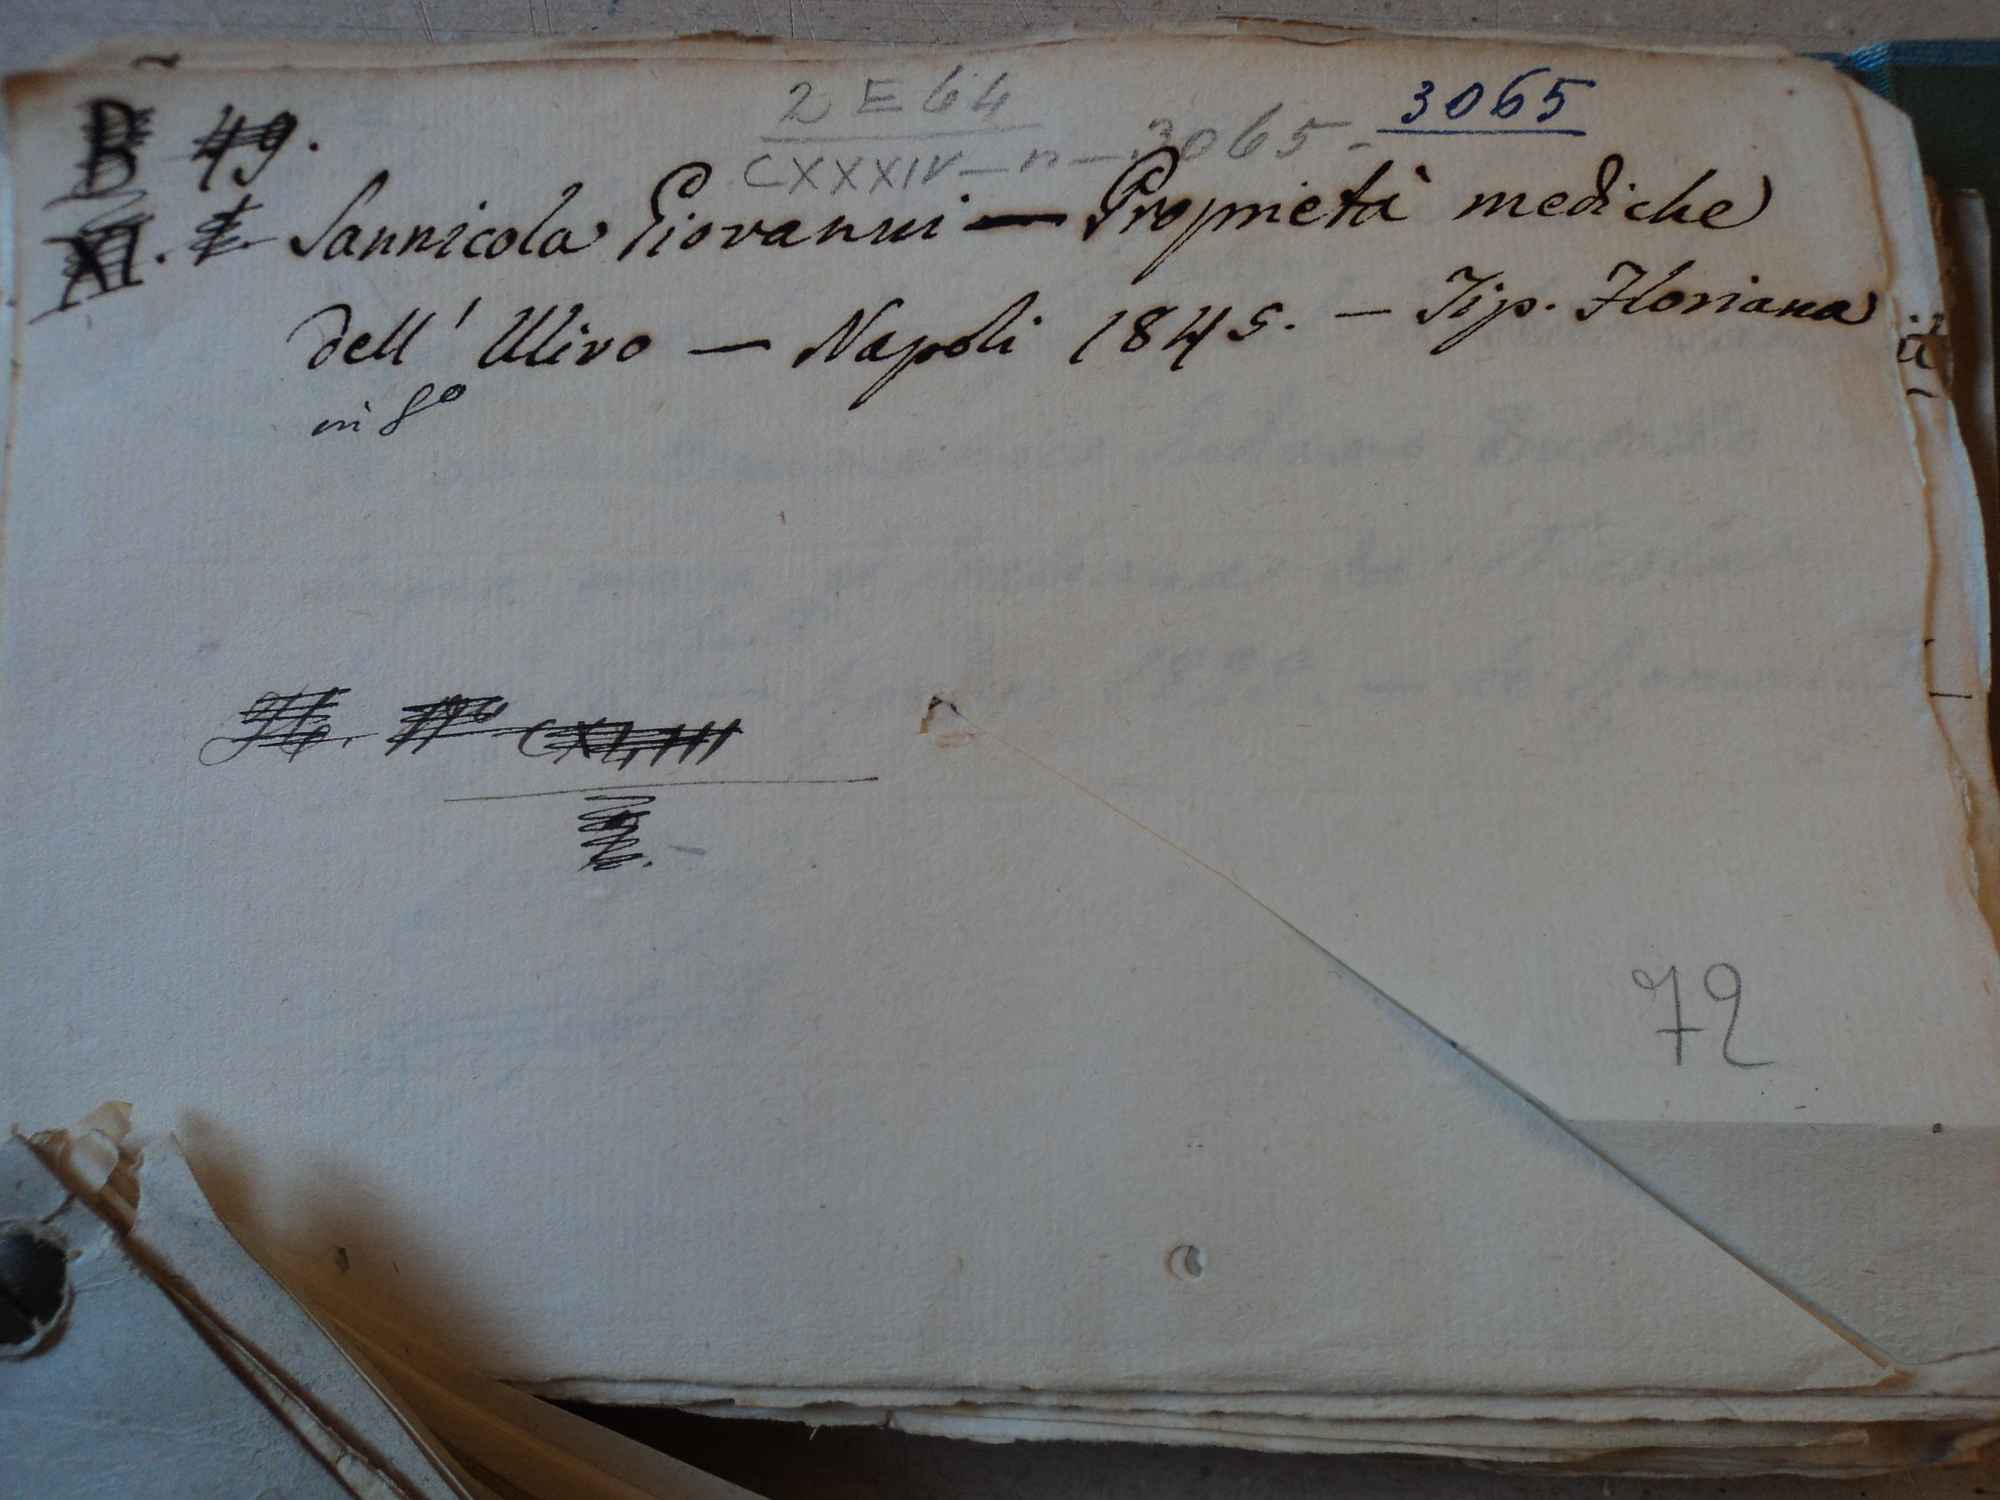 B 49.
2 E 64
3065
CXXXIV - n - 3065 -
XI. Sannicola Giovanni — Proprietà mediche
dell' Ulivo — Napoli 1845. — Tip. Floriana
in 8°
CXLIII
72